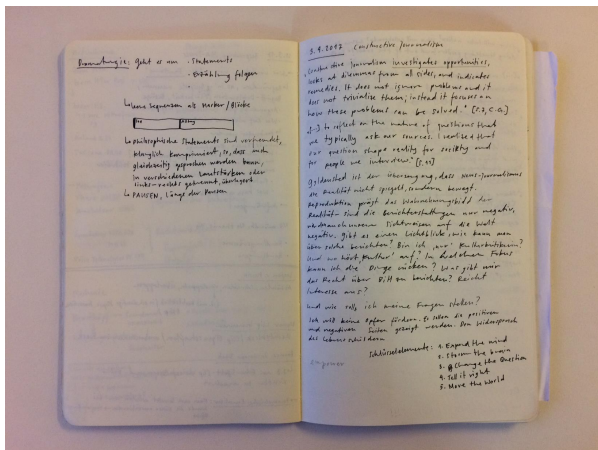 Dramaturgie: Geht es um · Statements
· Erzählung folgen
↳ Sequenzen als Marker / Blöcke
↳ philosophische Statements sind verfremdet,
klanglich komprimiert, so, dass auch
gleichzeitig gesprochen werden kann,
in verschiedenen Lautstärken oder
links-rechts getrennt, überlagert
↳ PAUSEN, Länge der Pausen
3.9.2017 Constructive Journalism
"Constructive Journalism investigates opportunities,
looks at dilemmas from all sides, and indicates
remedies. It does not ignore problems and it
does not trivialise them, instead it focuses on
how these problems can be solved."
"[...] to reflect on the nature of questions that
we typically ask our sources. I realized that
our question shape reality for society and
for people we interview."
Gyldensted ist der Überzeugung, dass News-Journalismus
die Realität nicht spiegelt, sondern bewegt.
Reproduktion prägt das Wahrnehmungsbild der
Realität. Sind die Berichterstattungen nur negativ,
wird auch unsere Sichtweisen auf die Welt
negativ. Gibt es einen Lichtblick, wie kann man
über solche berichten? Bin ich „nur" Kulturkritikerin?
Und wo hört „Kultur" auf? In welchen Fokus
kann ich die Dinge rücken? Was gibt mir
das Recht über zu berichten? Reicht
Interesse aus?
Und wie soll ich meine Fragen stellen?
Ich will keine Opfer fördern. Es sollen die positiven
und negativen Seiten gezeigt werden. Den Widerspruch
des Lebens schildern
Schlüsselelemente: 1. Expand the mind
2. Storm the brain
3. Change the Question
4. Tell it right
5. Move the World